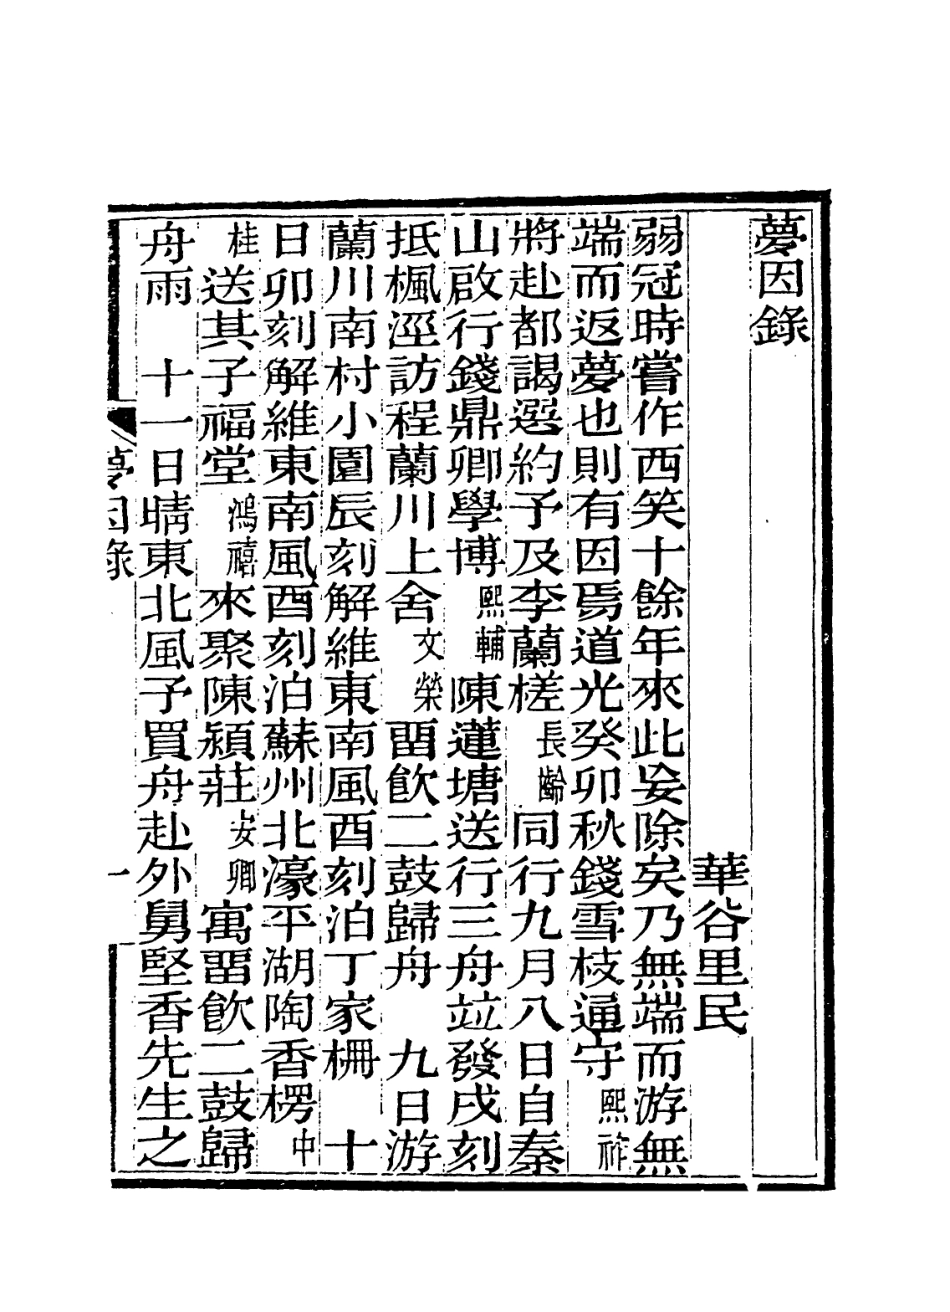 夢因錄
華谷里民
弱冠時嘗作西笑十餘年來此妄除矣乃無端而游無
端而返夢也則有因焉道光癸卯秋錢雪枝通守熙祚
將赴都謁選約予及李蘭槎長齡同行九月八日自秦
山啟行錢鼎卿學博熙輔陳蓮塘送行三舟竝發戌刻
抵楓涇訪程蘭川上舍文榮畱飮二鼓歸舟　九日游
蘭川南村小園辰刻解維東南風酉刻泊丁家柵　十
日卯刻解維東南風酉刻泊蘇州北濠平湖陶香楞中
桂送其子福堂鴻禧來聚陳潁莊安卿寓畱飮二鼓歸
舟雨　十一日晴東北風予買舟赴外舅堅香先生之
夢因錄
一